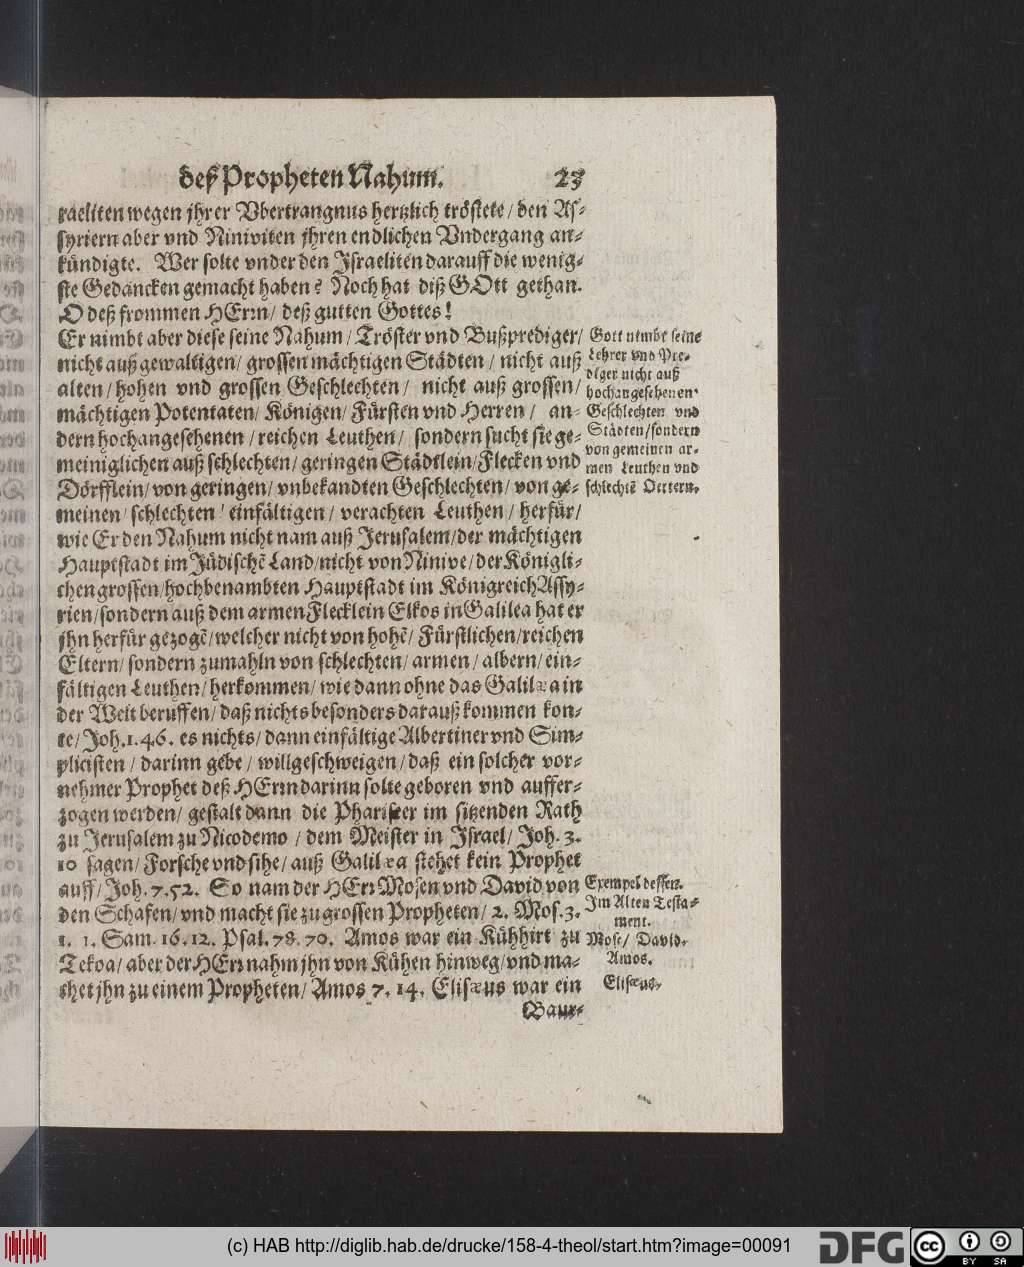 deß Propheten Nahum. 23
raeliten wegen jhrer Vbertrangnus hertzlich tröstete / den As-
syriern aber vnd Niniviten jhren endlichen Vndergang an-
kündigte. Wer solte vnder den Israeliten darauff die wenig-
ste Gedancken gemacht haben? Noch hat diß GOtt gethan.
O deß frommen HErrn / deß gutten Gottes!
Er nimbt aber diese seine Nahum / Tröster vnd Bußprediger /
nicht auß gewaltigen / grossen mächtigen Städten / nicht auß
alten / hohen vnd grossen Geschlechten / nicht auß grossen /
mächtigen Potentaten / Königen / Fürsten vnd Herren / an-
dern hochangesehenen / reichen Leuthen / sondern sucht sie ge-
meiniglichen auß schlechten / geringen Städtlein / Flecken vnd
Dörfflein / von geringen / vnbekandten Geschlechten / von ge-
meinen / schlechten / einfältigen / verachten Leuthen / herfür /
wie Er den Nahum nicht nam auß Jerusalem / der mächtigen
Hauptstadt im Jüdischē Land / nicht von Ninive / der Königli-
chen grossen / hochbenambten Hauptstadt im Königreich Assy-
rien / sondern auß dem armen Flecklein Elkos in Galilea hat er
jhn herfür gezogē / welcher nicht von hohē / Fürstlichen / reichen
Eltern / sondern zumahln von schlechten / armen / albern / ein-
fältigen Leuthen / herkommen / wie dann ohne das Galilæa in
der Welt beruffen / daß nichts besonders darauß kommen kon-
te / Joh. 1. 46. es nichts / dann einfältige Albertiner vnd Sim-
plicisten / darinn gebe / willgeschweigen / daß ein solcher vor-
nehmer Prophet deß HErrn darinn solte geboren vnd auffer-
zogen werden / gestalt dann die Phariseer im sitzenden Rath
zu Jerusalem zu Nicodemo / dem Meister in Israel / Joh. 3.
10 sagen / Forsche vnd sihe / auß Galilæa stehet kein Prophet
auff / Joh. 7. 52. So nam der HErr Mosen vnd David von
den Schafen / vnd macht sie zu grossen Propheten / 2. Mos. 3.
1. 1. Sam. 16. 12. Psal. 78. 70. Amos war ein Kühhirt zu
Tekoa / aber der HErr nahm jhn von Kühen hinweg / vnd ma-
chet jhn zu einem Propheten / Amos 7. 14. Elisæus war ein
Baur-
Gott nimbt seine
Lehrer vnd Pre-
diger nicht auß
hochangesehenen
Geschlechten vnd
Städten / sondern
von gemeinen ar-
men Leuthen vnd
schlechtē Oertern.
Exempel dessen.
Im Alten Testa-
ment.
Mose / David.
Amos.
Elisæus.
(c) HAB http://diglib.hab.de/drucke/158-4-theol/start.htm?image=00091
DFG
cc
BY SA